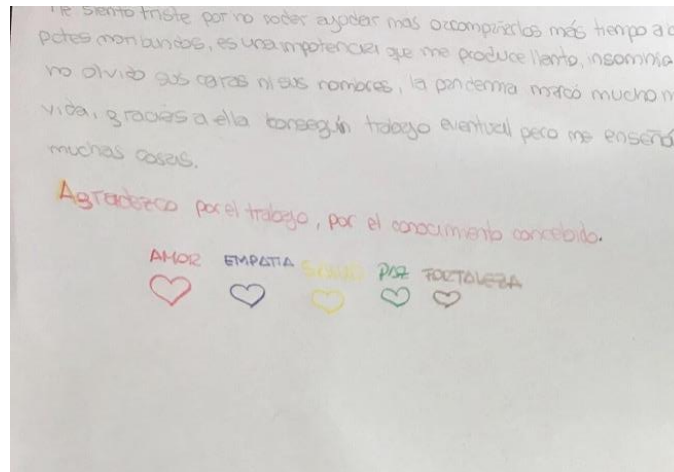 Me siento triste por no poder ayudar mas o acompañarlos más tiempo a
pctes moribundos, es una impotencia que me produce llanto, insomnia
no olvido sus caras ni sus nombres, la pandemia marcó mucho m
vida, gracias a ella conseguin trabajo eventual pero me enseñó
muchas cosas.
Agradezco por el trabajo, por el conocimiento concebido.
AMOR EMPATIA SALUD PAZ FORTALEZA